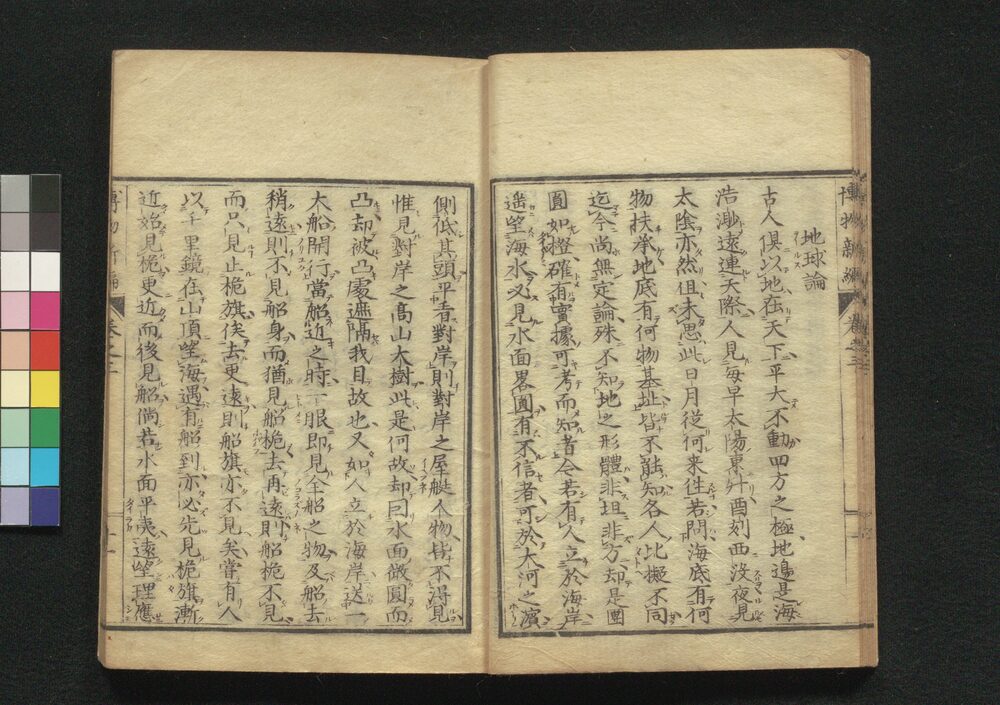 博物新編
地球論
古人俱以地在天下平大不動四方之極地邉是海
浩渺遠連天際人見每早太陽東升酉刻西沒夜見
太陰亦然但未思此日月從何来徃若問海底有何
物扶承地底有何物基址皆不能知名人比擬不同
迄今尚無定論殊不知地之形體非坦非方却是團
圓如橙確有實據可考而知者今若有人立於海岸
遥望海水又見水面畧圓有不信者可於大河之濱
側低其頭平看對岸則對岸之屋艇人物皆不得見
惟見對岸之高山大樹此是何故却曰水面微圓而
凸却被凸處遮隔我目故也又如人立於海岸送一
大船開行當船近之時一眼即見全船之物及船去
稍遠則不見船身而猶見船桅去再遠則船桅不見
而只見止桅旗俟去更遠則船旗亦不見矣嘗有人
以千里鏡在山頂望海遇有船到亦必先見桅旗漸
近始見桅更近而後見船倘若水面平夷遠望理應